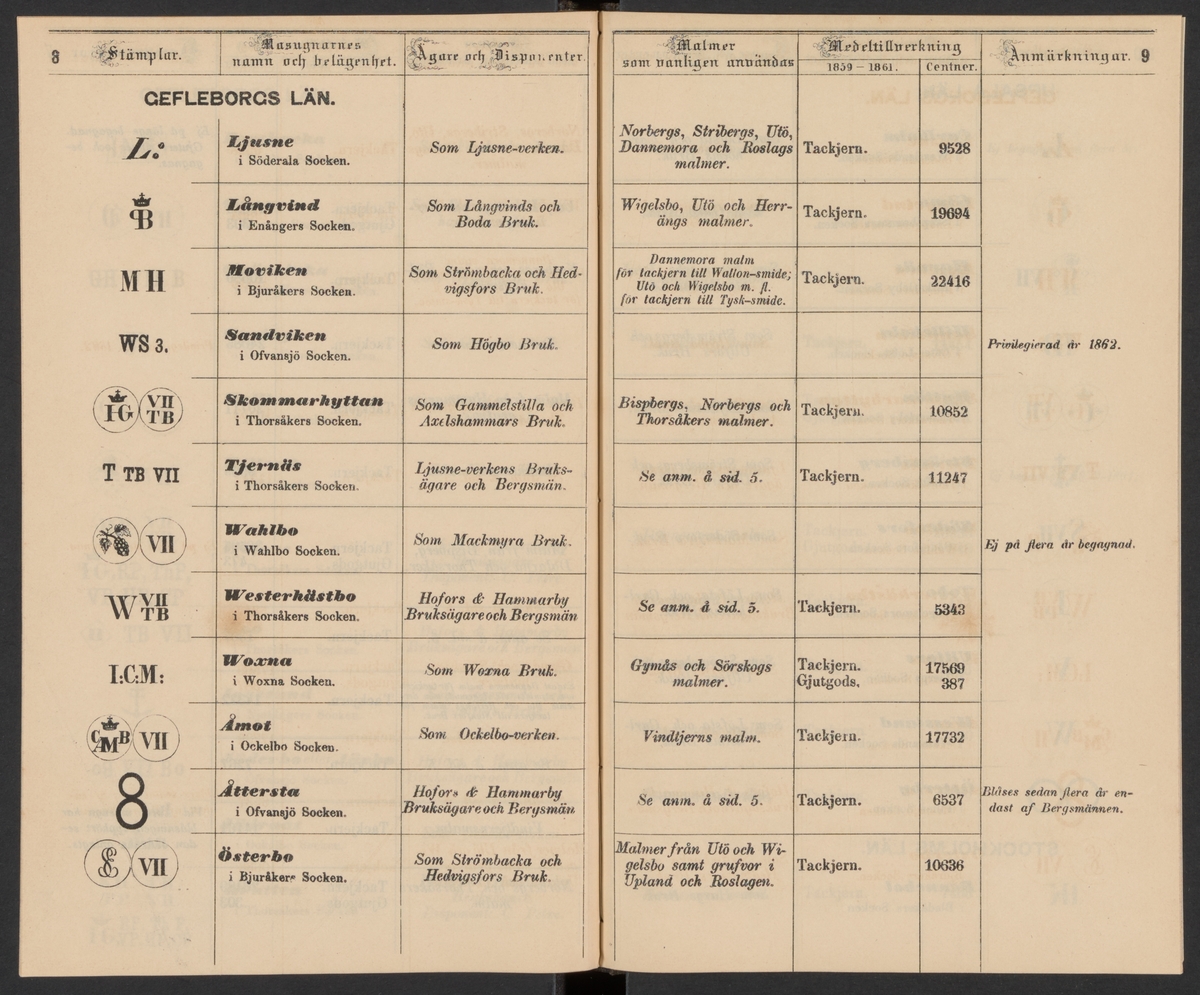 8
Stämplar.
Masugnarnes
namn och belägenhet.
Ägare och Disponenter.
Malmer
som vanligen användas
Medeltillverkning
1859 – 1861.
Centner.
Anmärkningar.
9
GEFLEBORGS LÄN.
L:
Ljusne
i Söderala Socken.
Som Ljusne-verken.
Norbergs, Stribergs, Utö,
Dannemora och Roslags
malmer.
Tackjern.
9528
B
Långvind
i Enångers Socken.
Som Långvinds och
Boda Bruk.
Wigelsbo, Utö och Herr-
ängs malmer.
Tackjern.
19694
M H
Moviken
i Bjuråkers Socken.
Som Strömbacka och Hed-
vigsfors Bruk.
Dannemora malm
för tackjern till Wallon-smide;
Utö och Wigelsbo m. fl.
för tackjern till Tysk-smide.
Tackjern.
22416
WS 3.
Sandviken
i Ofvansjö Socken.
Som Högbo Bruk.
Privilegierad år 1862.
HG
VII
TB
Skommarhyttan
i Thorsåkers Socken.
Som Gammelstilla och
Axelshammars Bruk.
Bispbergs, Norbergs och
Thorsåkers malmer.
Tackjern.
10852
T TB VII
Tjernäs
i Thorsåkers Socken.
Ljusne-verkens Bruks-
ägare och Bergsmän.
Se anm. å sid. 5.
Tackjern.
11247
VII
Wahlbo
i Wahlbo Socken.
Som Mackmyra Bruk.
Ej på flera år begagnad.
W VII
TB
Westerhästbo
i Thorsåkers Socken.
Hofors & Hammarby
Bruksägare och Bergsmän
Se anm. å sid. 5.
Tackjern.
5343
I:C:M:
Woxna
i Woxna Socken.
Som Woxna Bruk.
Gymås och Sörskogs
malmer.
Tackjern.
Gjutgods.
17569
387
CAMB
VII
Åmot
i Ockelbo Socken.
Som Ockelbo-verken.
Vindtjerns malm.
Tackjern.
17732
8
Åttersta
i Ofvansjö Socken.
Hofors & Hammarby
Bruksägare och Bergsmän
Se anm. å sid. 5.
Tackjern.
6537
Blåses sedan flera år en-
dast af Bergsmännen.
E
VII
Österbo
i Bjuråkers Socken.
Som Strömbacka och
Hedvigsfors Bruk.
Malmer från Utö och Wi-
gelsbo samt grufvor i
Upland och Roslagen.
Tackjern.
10636